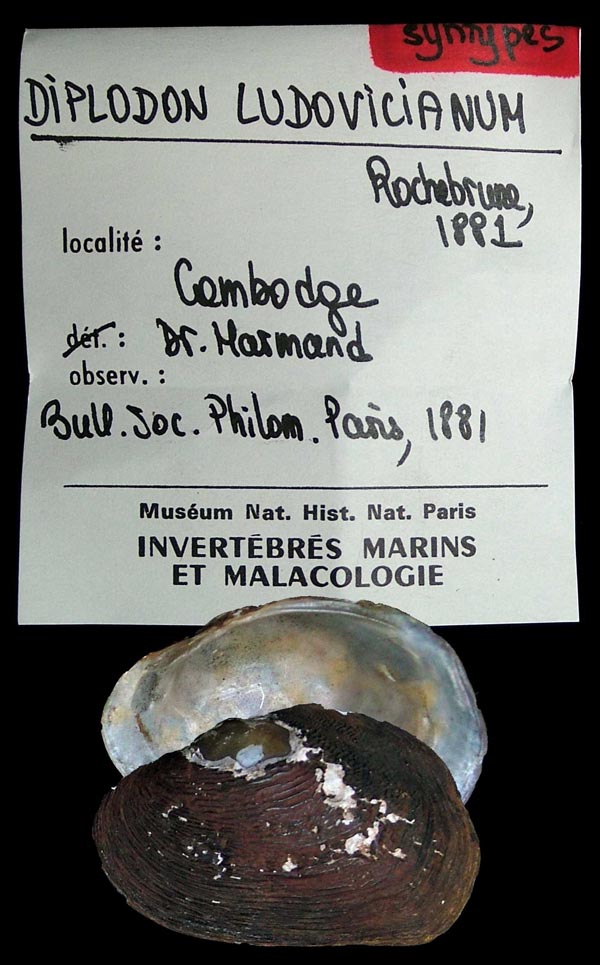 syntypes
DIPLODON LUDOVICIANUM
Rochebrune,
1881
localité :
Cambodge
dét. : Dr. Harmand
observ. :
Bull. Soc. Philom. Paris, 1881
Muséum Nat. Hist. Nat. Paris
INVERTÉBRÉS MARINS
ET MALACOLOGIE